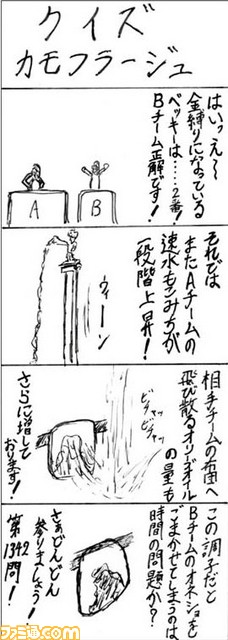 クイズ
カモフラージュ
はいっえ〜
金縛りになっている
ベッキーは……2番!
Bチーム正解です!
A
B
それでは
またAチームの
速水もこみちが
一段階上昇!
ウィーン
相手チームの布団へ
飛び散るオリーブオイル
の量も
ビチャッ
ビチャッ
さらに増して
おります!
この調子だと
Bチームのオネショを
ごまかせてしまうのは
時間の問題か?
さぁどんどん
参りましょう!
第1342問!
ファミ通.com